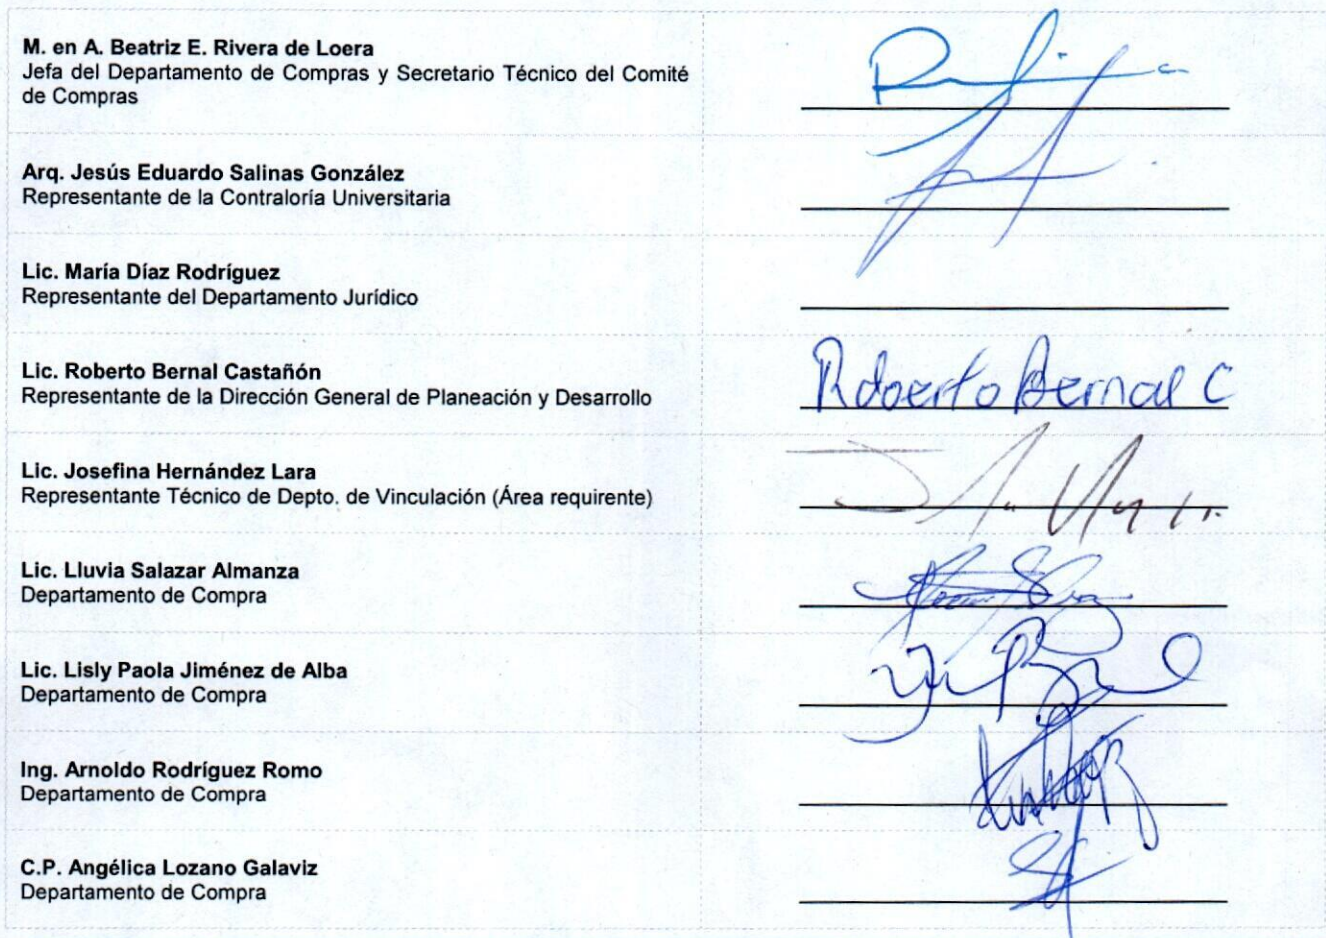 M. en A. Beatriz E. Rivera de Loera
Jefa del Departamento de Compras y Secretario Técnico del Comité
de Compras
Arq. Jesús Eduardo Salinas González
Representante de la Contraloría Universitaria
Lic. María Díaz Rodríguez
Representante del Departamento Jurídico
Lic. Roberto Bernal Castañón
Representante de la Dirección General de Planeación y Desarrollo
Roberto Bernal C
Lic. Josefina Hernández Lara
Representante Técnico de Depto. de Vinculación (Área requirente)
Lic. Lluvia Salazar Almanza
Departamento de Compra
Lic. Lisly Paola Jiménez de Alba
Departamento de Compra
Ing. Arnoldo Rodríguez Romo
Departamento de Compra
C.P. Angélica Lozano Galaviz
Departamento de Compra